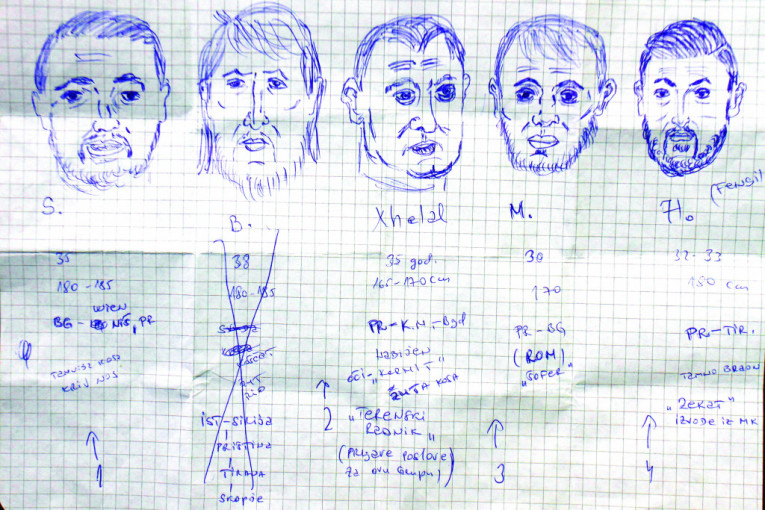 S.
35
180-185
Wien
BG - NIŠ, PR
TAMNIJA KOSA
KRIV NOS
1
B.
38
180-185
KOŠČAT
IST-SIRIJA
PRIŠTINA
TIRANA
SKOPJE
Xhelal
35 god.
165-170 cm
PR-K.M.-Bgd
NABIJEN
OČI-„KERMIT"
ŽUTA KOSA
2
„TERENSKI
RADNIK"
(Prljave poslove
za ovu grupu)
M.
30
170
PR-BG
(ROM)
„ŠOFER"
3
71.
32-33
180 cm
PR-TIR.
TAMNO BRAON
„ZEKAT"
IZVODE IZ MK
4